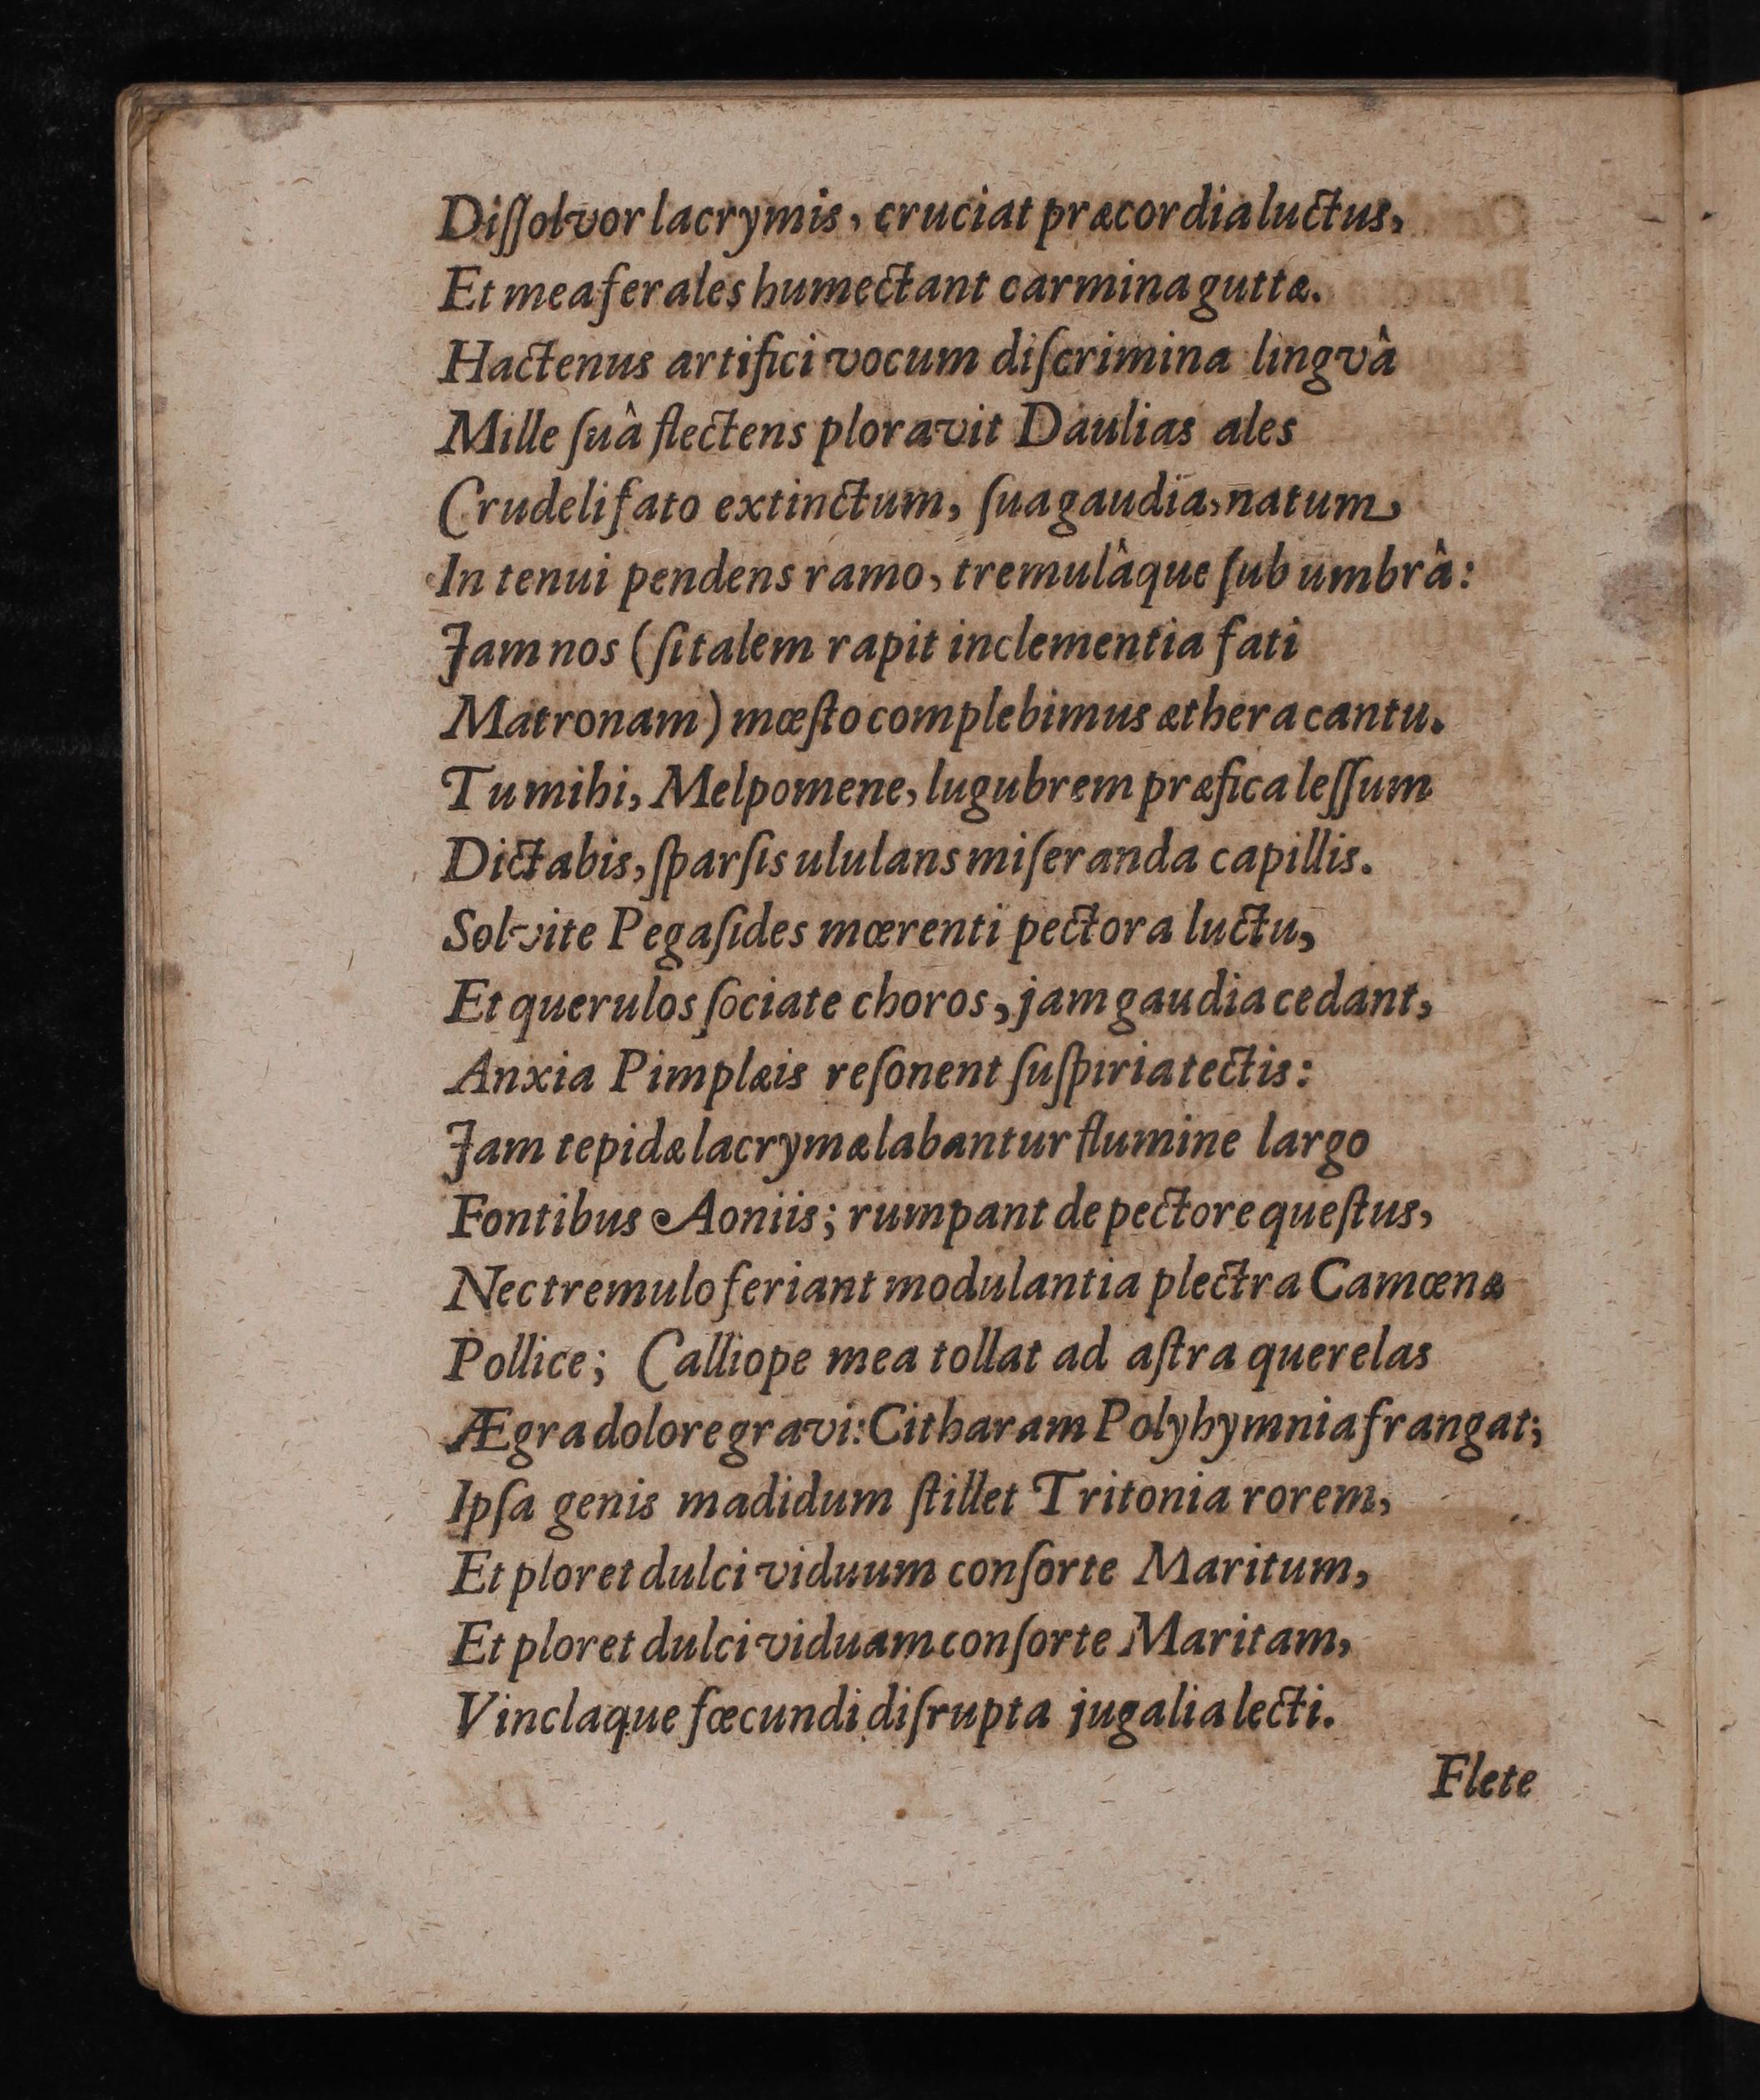 Diſſolvor lacrymis, cruciat præcordia luctus,
Et mea ferales humectant carmina guttæ.
Hactenus artifici vocum diſcrimina lingvâ
Mille ſuâ flectens ploravit Daulias ales
Crudeli fato extinctum, ſua gaudia, natum,
In tenui pendens ramo, tremulâque ſub umbrâ:
Jam nos (ſi talem rapit inclementia fati
Matronam) mœſto complebimus æthera cantu.
Tu mihi, Melpomene, lugubrem præfica leſſum
Dictabis, ſparſis ululans miſeranda capillis.
Solvite Pegaſides mœrenti pectora luctu,
Et querulos ſociate choros, jam gaudia cedant,
Anxia Pimplæis reſonent ſuſpiria tectis:
Jam tepidæ lacrymæ labantur flumine largo
Fontibus Aoniis; rumpant de pectore queſtus,
Nec tremulo feriant modulantia plectra Camœnæ
Pollice; Calliope mea tollat ad aſtra querelas
Ægra dolore gravi: Citharam Polyhymnia frangat;
Ipſa genis madidum ſtillet Tritonia rorem,
Et ploret dulci viduum conſorte Maritum,
Et ploret dulci viduam conſorte Maritam,
Vinclaque fœcundi diſrupta jugalia lecti.
Flete